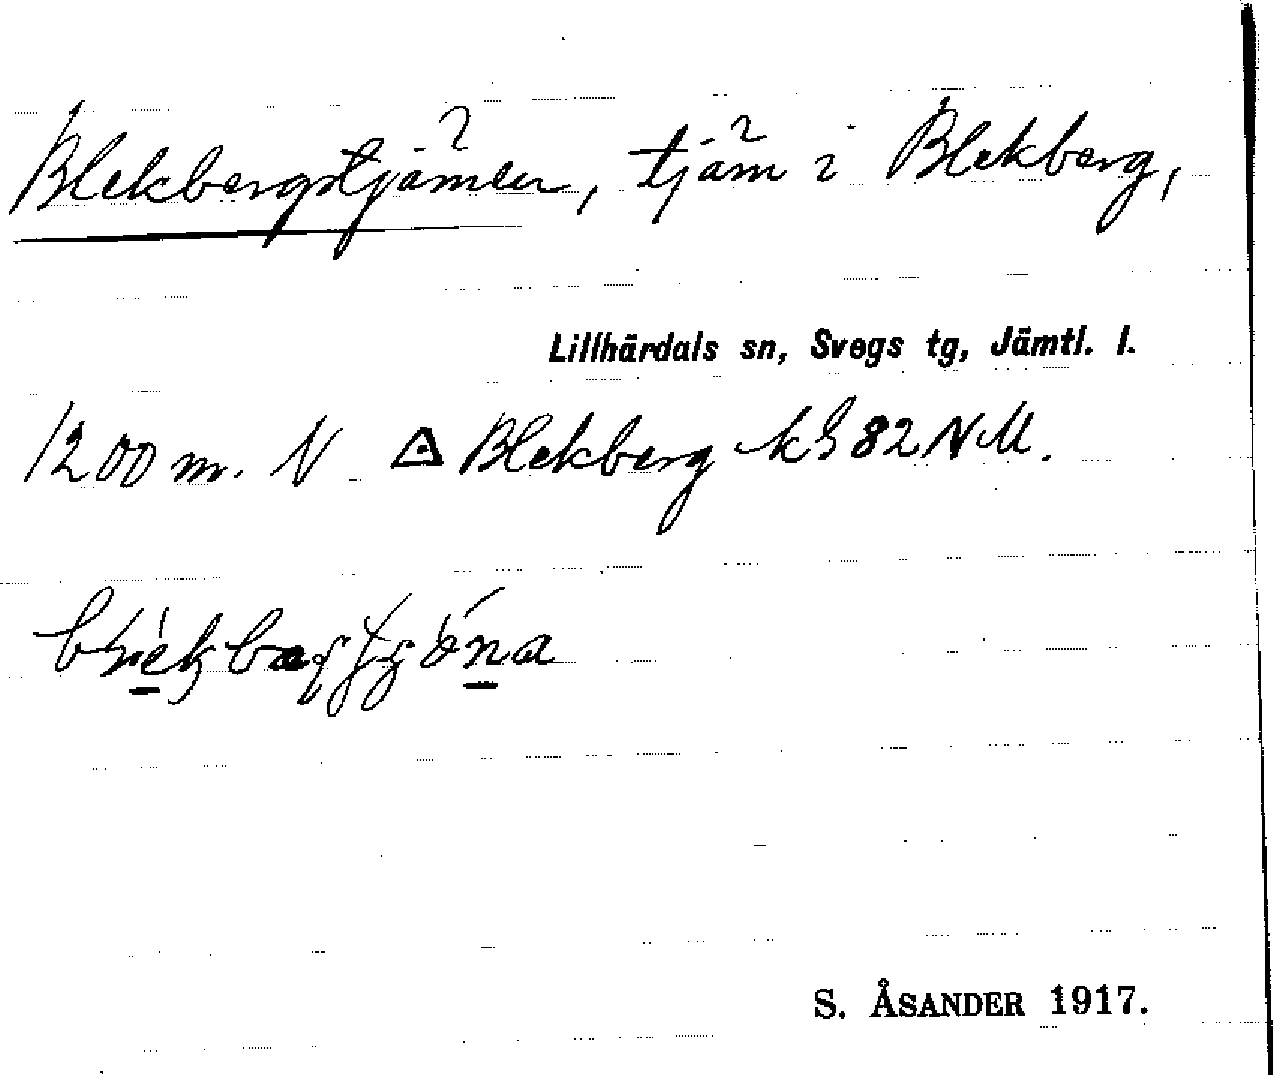 Blekbergstjärnen, tjärn i Blekberg,
Lillhärdals sn, Svegs tg, Jämtl. l.
1200 m. N △ Blekberg kS 82 NM.
S. ÅSANDER 1917.